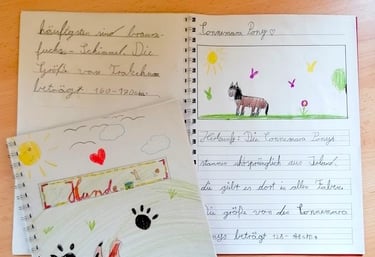 häufigsten und braun-
fuchs - Schimmel. Die
Größe von Trakehnern
beträgt 160-170cm.
Connemara Pony
Herkunft: Die Connemara Ponys
stammen ursprünglich aus
die gibt es dort in allen Farben.
Die größe von den Connemara
beträgt
Hunde